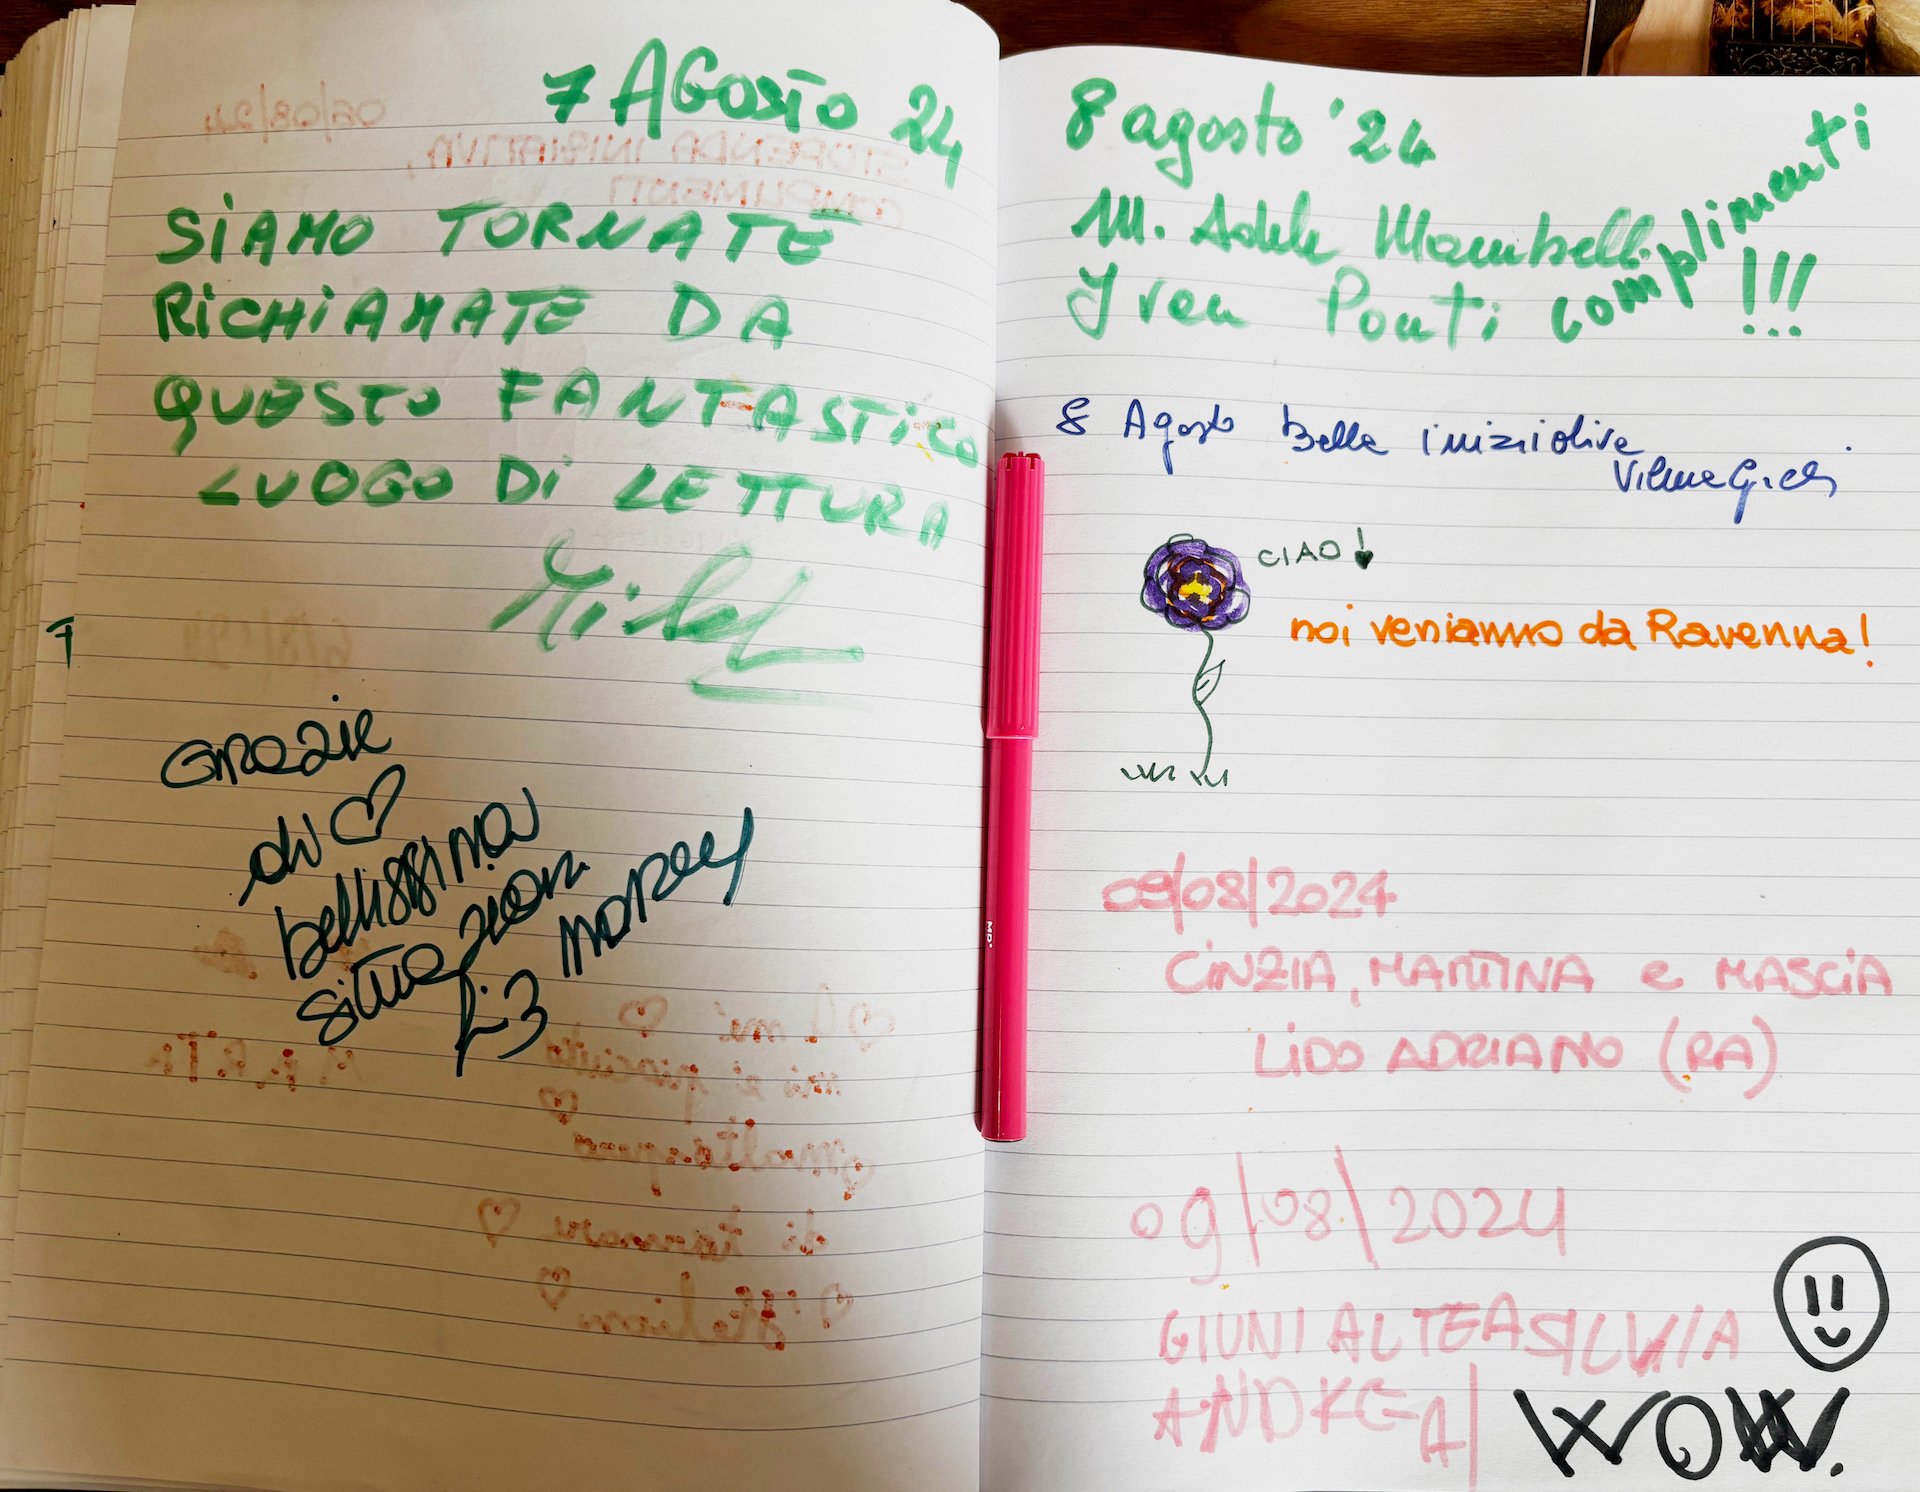 7 AGOSTO 24
SiAMO TORNATE
RiCHiAMATE DA
QUESTO FANTASTiCO
LUOGO Di LETTURA
7
Grazie
di
bellissima
situazione
8 agosto '24
M. Adele Mambelli
Iren Ponti complimenti !!!
8 Agosto belle iniziative
CIAO!
noi veniamo da Ravenna!
09/08/2024
CiNZIA, MARTINA e MASCIA
LiDO ADRIANO (RA)
09/08/2024
GIUNI ALTEA SILVIA
ANDREA
WOW.
MD
06/08/24
STUPENDA INIZIATIVA,
COMPLIMENTI